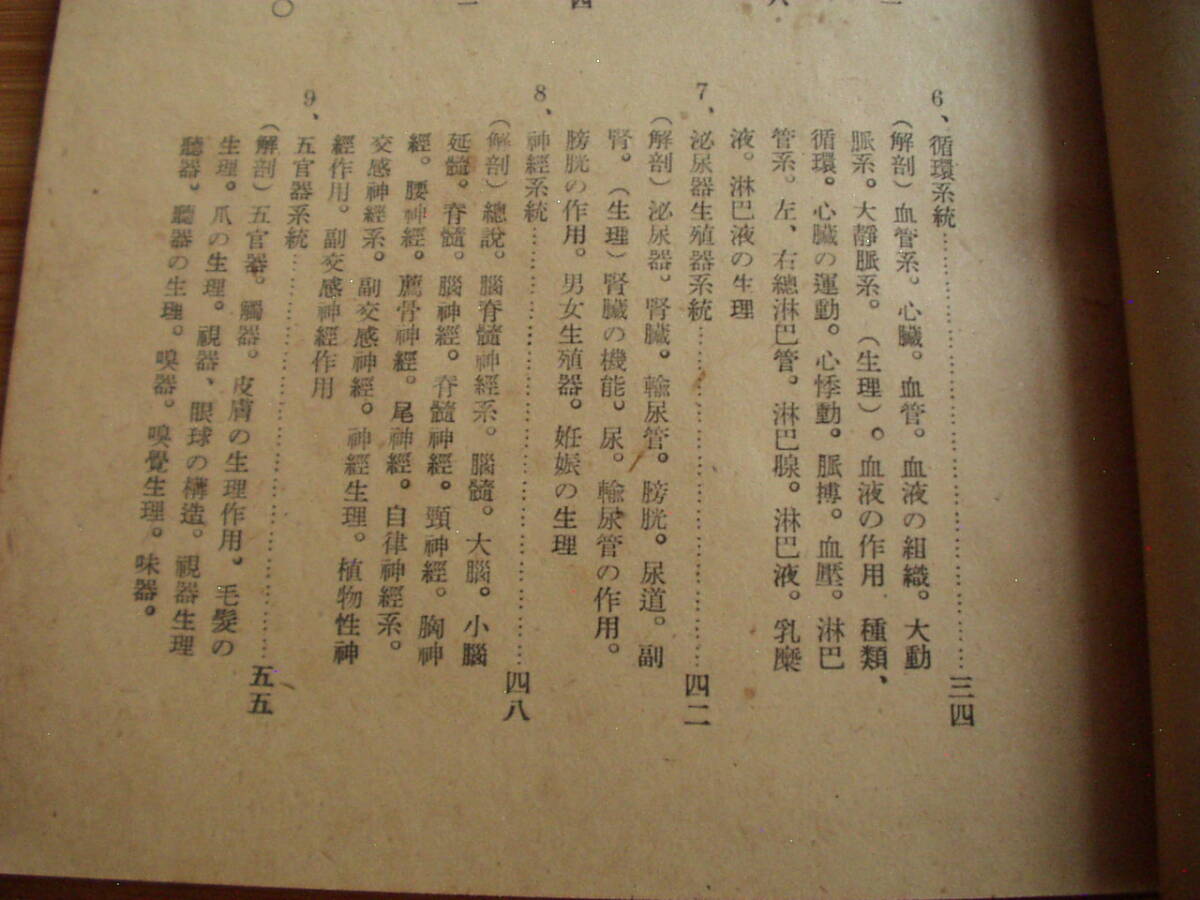 6、循環系統……………………三四
（解剖）血管系。心臟。血管。血液の組織。大動
脈系。大靜脈系。（生理）。血液の作用 種類、
循環。心臟の運動。心悸動。脈搏。血壓。淋巴
管系。左、右總淋巴管。淋巴腺。淋巴液。乳糜
液。淋巴液の生理
7、泌尿器生殖器系統……………………四二
（解剖）泌尿器。腎臟。輸尿管。膀胱。尿道。副
腎。（生理）腎臟の機能。尿。輸尿管の作用。
膀胱の作用。男女生殖器。姙娠の生理
8、神經系統……………………四八
（解剖）總說。腦脊髓神經系。腦髓。大腦。小腦
延髓。脊髓。腦神經。脊髓神經。頸神經。胸神
經。腰神經。薦骨神經。尾神經。自律神經系。
交感神經系。副交感神經。神經生理。植物性神
經作用。副交感神經作用
9、五官器系統……………………五五
（解剖）五官器。觸器。皮膚の生理作用。毛髮の
生理。爪の生理。視器、眼球の構造。視器生理
聽器。聽器の生理。嗅器。嗅覺生理。味器。